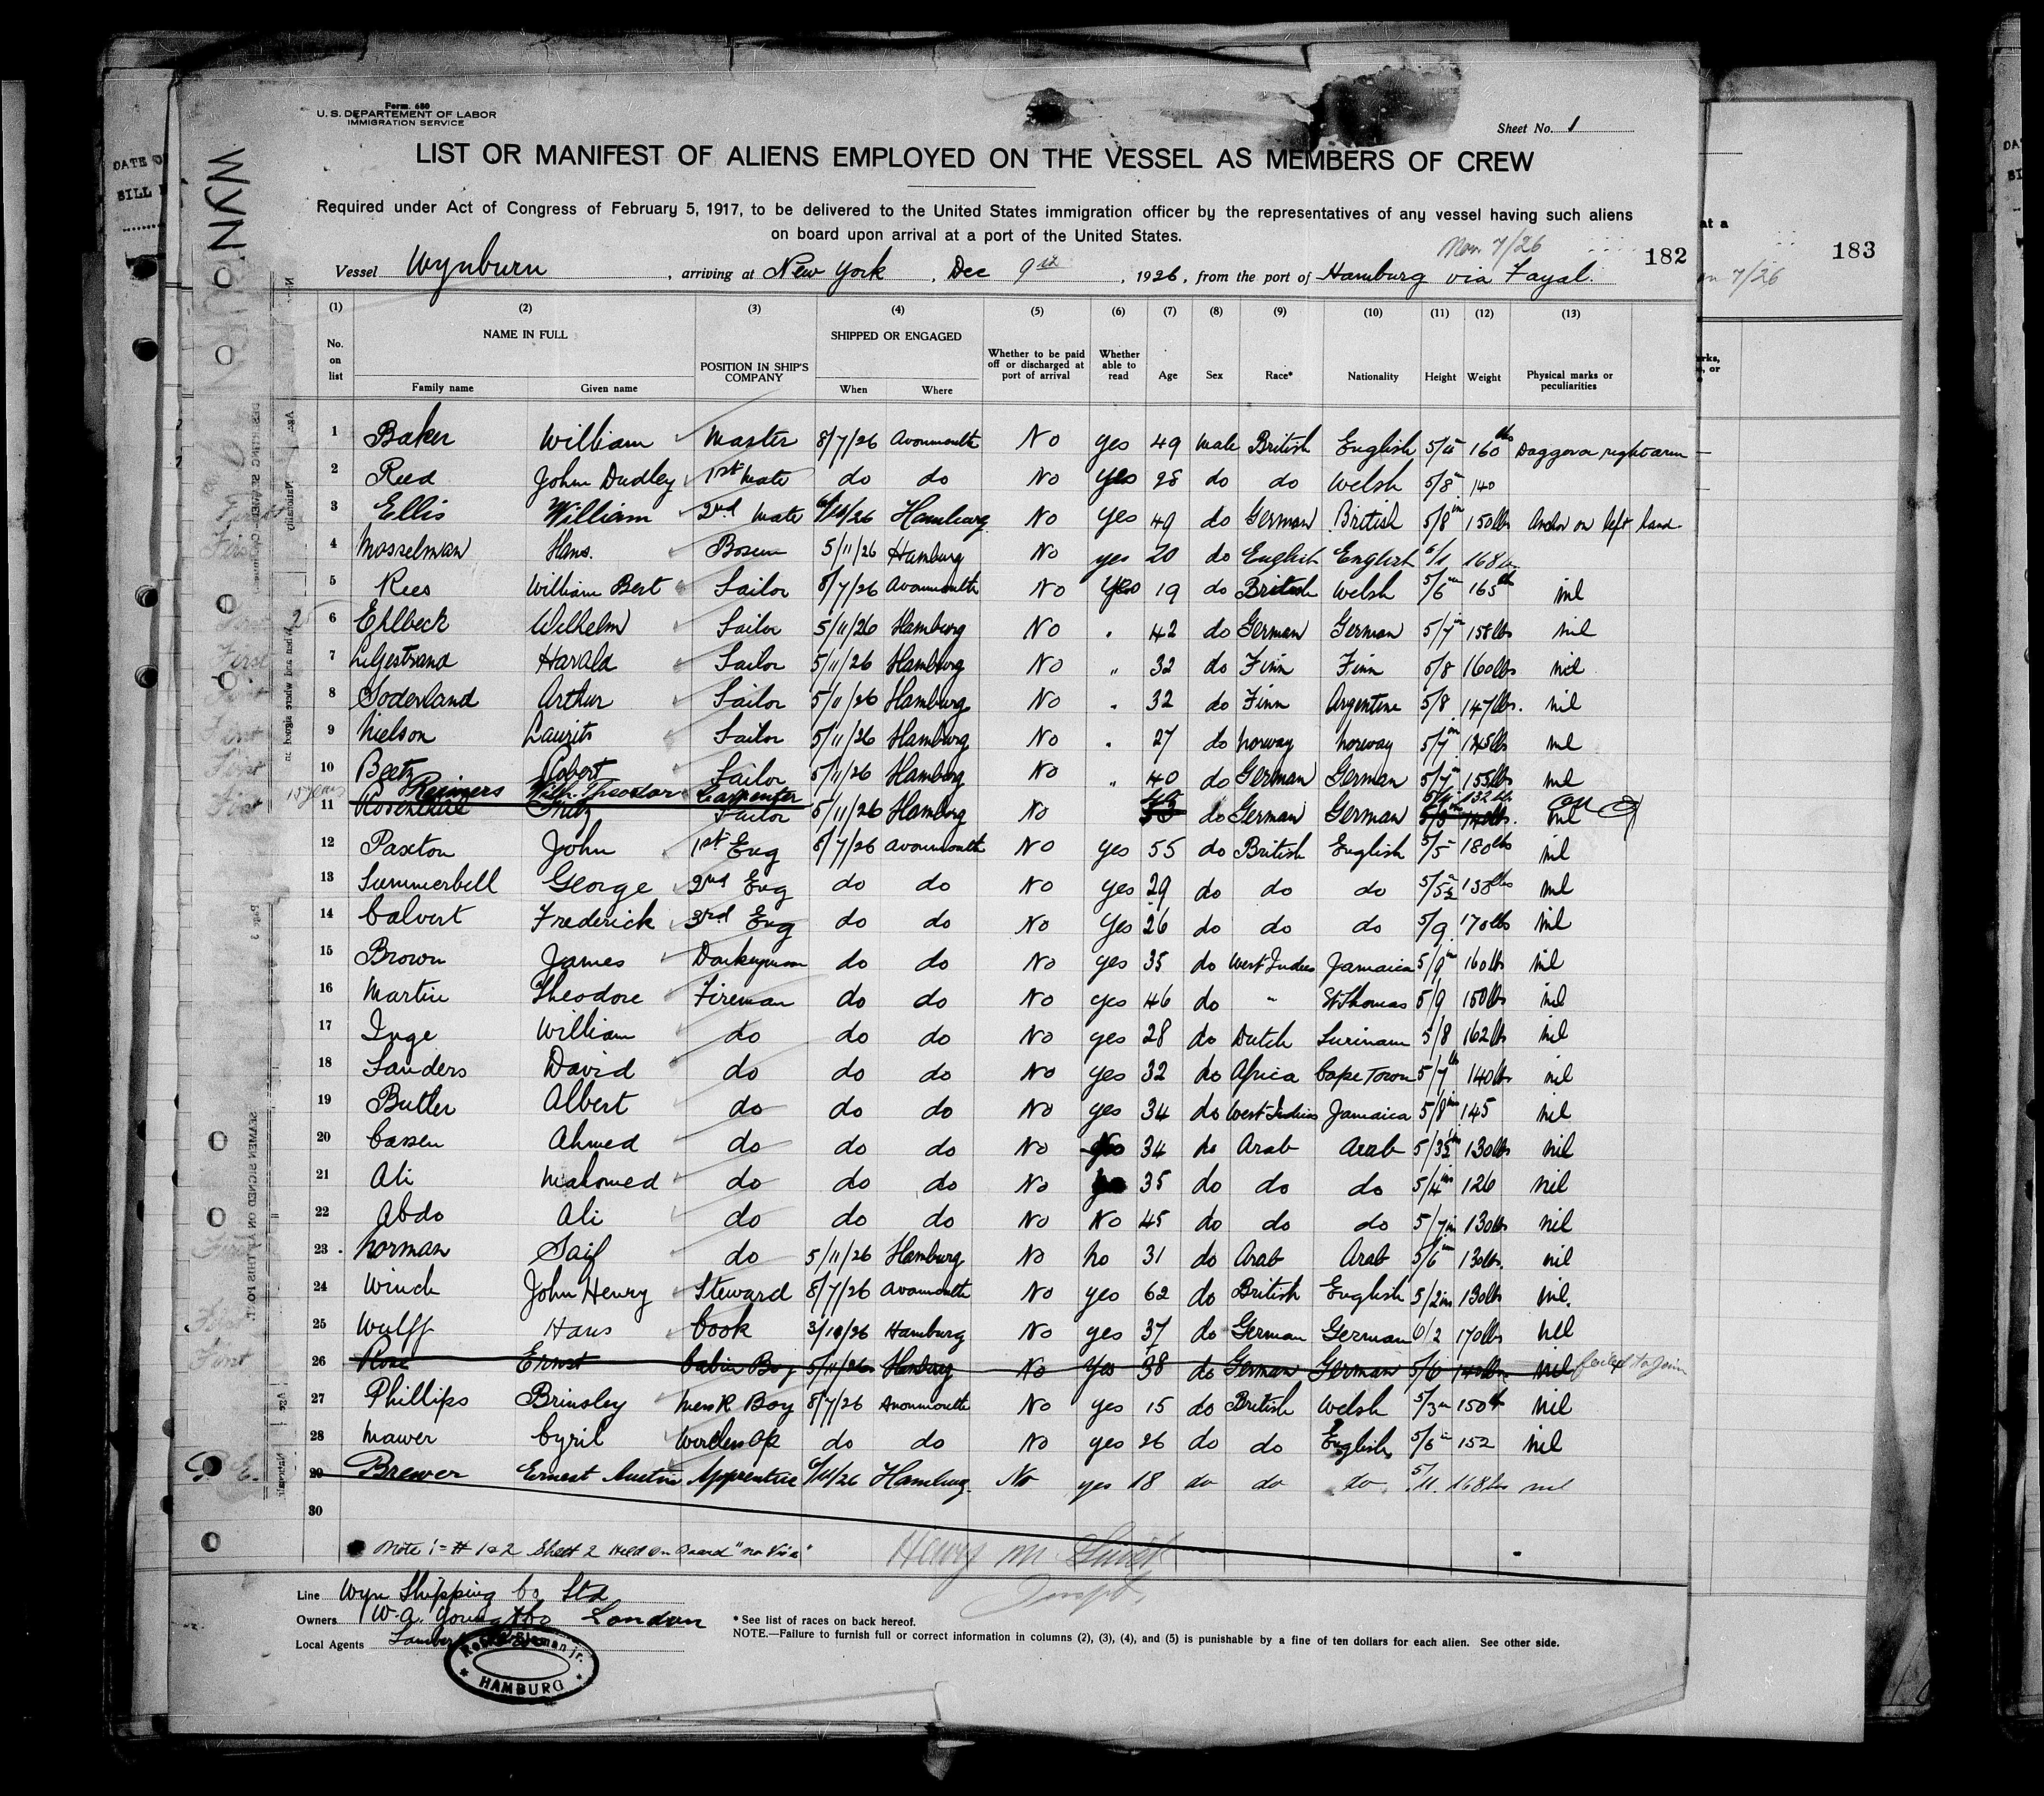 Form. 680
U. S. DEPARTEMENT OF LABOR
IMMIGRATION SERVICE
Sheet No. 1
LIST OR MANIFEST OF ALIENS EMPLOYED ON THE VESSEL AS MEMBERS OF CREW
Required under Act of Congress of February 5, 1917, to be delivered to the United States immigration officer by the representatives of any vessel having such aliens
on board upon arrival at a port of the United States.
Nov 7/26
182
183
Vessel Wynburn, arriving at New York, Dec 9th, 1926, from the port of Hamburg via Fayal.
(1) (2) (3) (4) (5) (6) (7) (8) (9) (10) (11) (12) (13)
No. on list NAME IN FULL Family name Given name POSITION IN SHIP'S COMPANY SHIPPED OR ENGAGED When Where Whether to be paid off or discharged at port of arrival Whether able to read Age Sex Race* Nationality Height Weight Physical marks or peculiarities
1 Baker William Master 8/7/26 Avonmouth No yes 49 male British English 5/11 160 lbs Dagger on right arm
2 Reed John Dudley 1st Mate do do No Yes 28 do do Welsh 5/8 140
3 Ellis William 2nd Mate 6/11/26 Hamburg No Yes 49 do German British 5/8 150 lbs Anchor on left hand
4 Mosselman Hans. Bosun 5/11/26 Hamburg No yes 20 do English English 6/1 168
5 Rees William Bert Sailor 8/7/26 Avonmouth No Yes 19 do British Welsh 5/6 165 nil
6 Ehlbeck Wilhelm Sailor 5/11/26 Hamburg No " 42 do German German 5/7 158 lbs nil
7 Liljestrand Harald Sailor 5/11/26 Hamburg No " 32 do Finn Finn 5/8 160 lbs nil
8 Soderland Arthur Sailor 5/11/26 Hamburg No " 32 do Finn Argentine 5/8 147 lbs. nil
9 Nielson Laurits Sailor 5/11/26 Hamburg No " 27 do Norway Norway 5/7 145 lbs nil
10 Beetz Robert Sailor 5/11/26 Hamburg No " 40 do German German 5/7 155 lbs nil
Reimers Wilh. Theodor Carpenter
11 Rosendahl Fritz Sailor 5/11/26 Hamburg No do German German nil
12 Paxton John 1st Eng 8/7/26 Avonmouth No yes 55 do British English 5/5 180 lbs nil
13 Summerbell George 2nd Eng do do No yes 29 do do do 5/5½ 138 lbs nil
14 Calvert Frederick 3rd Eng do do No Yes 26 do do do 5/9 170 lbs nil
15 Brown James Donkeyman do do No yes 35 do West Indies Jamaica 5/9 160 lbs nil
16 Martin Theodore Fireman do do No yes 46 do " St Thomas 5/9 150 lbs nil
17 Inge William do do do No yes 28 do Dutch Surinam 5/8 162 lbs nil
18 Sanders David do do do No yes 32 do Africa Cape Town 5/7 140 lbs nil
19 Butler Albert do do do No yes 34 do West Indies Jamaica 5/8 145 nil
20 Cassen Ahmed do do do No No 34 do Arab Arab 5/3½ 130 lbs nil
21 Ali Mahomed do do do No 35 do do do 5/4 126 nil
22 Abdo Ali do do do No No 45 do do do 5/7 130 lbs nil
23 Norman Saif do 5/11/26 Hamburg No No 31 do Arab Arab 5/6 130 lbs. nil
24 Winch John Henry Steward 8/7/26 Avonmouth No yes 62 do British English 5/2 ins 130 lbs nil.
25 Wulff Hans Cook 3/10/26 Hamburg No yes 37 do German German 6/2 170 lbs nil
26 Rose Ernst Cabin Boy 5/11/26 Hamburg No Yes 38 do German German 5/6 140 lbs nil failed to join
27 Phillips Brinsley Mess R. Boy 8/7/26 Avonmouth No yes 15 do British Welsh 5/3 150 nil
28 Mawer Cyril Wireless Op do do No yes 26 do do English 5/6 152 nil
29 Brewer Ernest Austin Apprentice 6/11/26 Hamburg. No yes 18 do do do 5/11. 168 lbs nil
30
Note :- # 1 & 2 Sheet 2 Held on Board "no Visa"
Line Wyn Shipping Co Ltd
Owners W. A. Young & Co London
Local Agents
HAMBURG
* See list of races on back hereof.
NOTE.—Failure to furnish full or correct information in columns (2), (3), (4), and (5) is punishable by a fine of ten dollars for each alien. See other side.